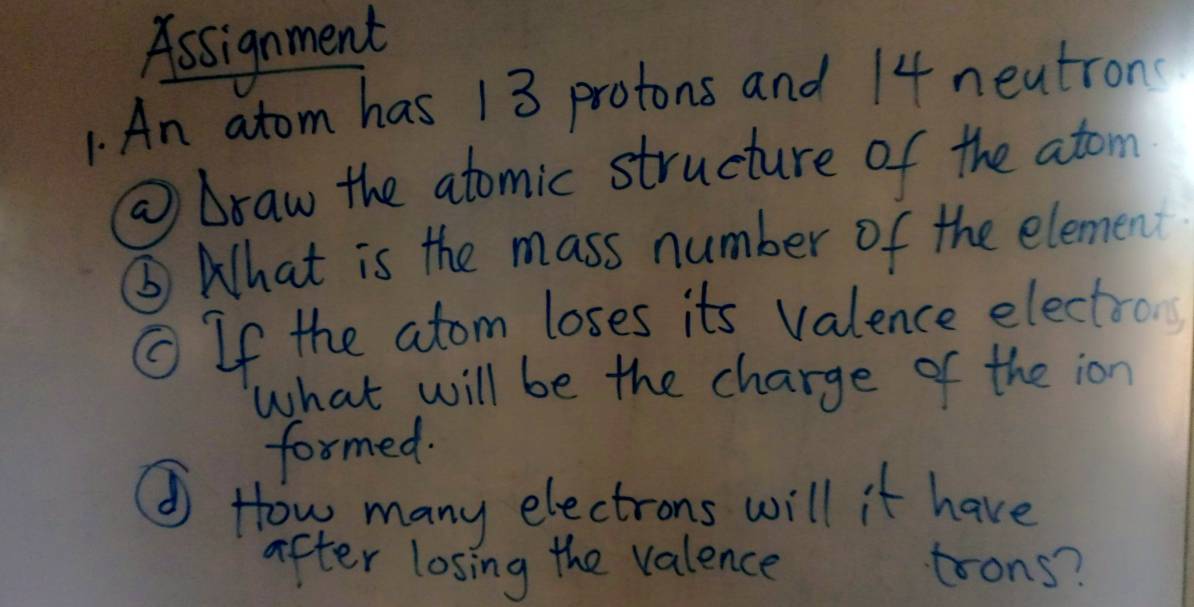 Assignment
1. An atom has 13 protons and 14 neutrons.
(a) Draw the atomic structure of the atom.
(b) What is the mass number of the element.
(c) If the atom loses its valence electrons,
what will be the charge of the ion
formed.
(d) How many electrons will it have
after losing the valence trons?